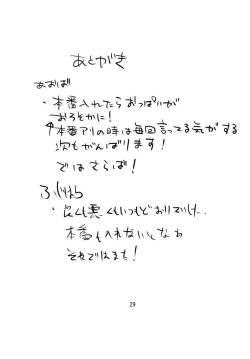 あとがき
あおば
・本番入れたらおっぱいが
おろそかに!
↑本番アリの時は毎回言ってる気がする
次もがんばります!
ではさらば!
・良くも悪くもいつもどおりでした.
本番も入れないとなぁ
それではまた!
29